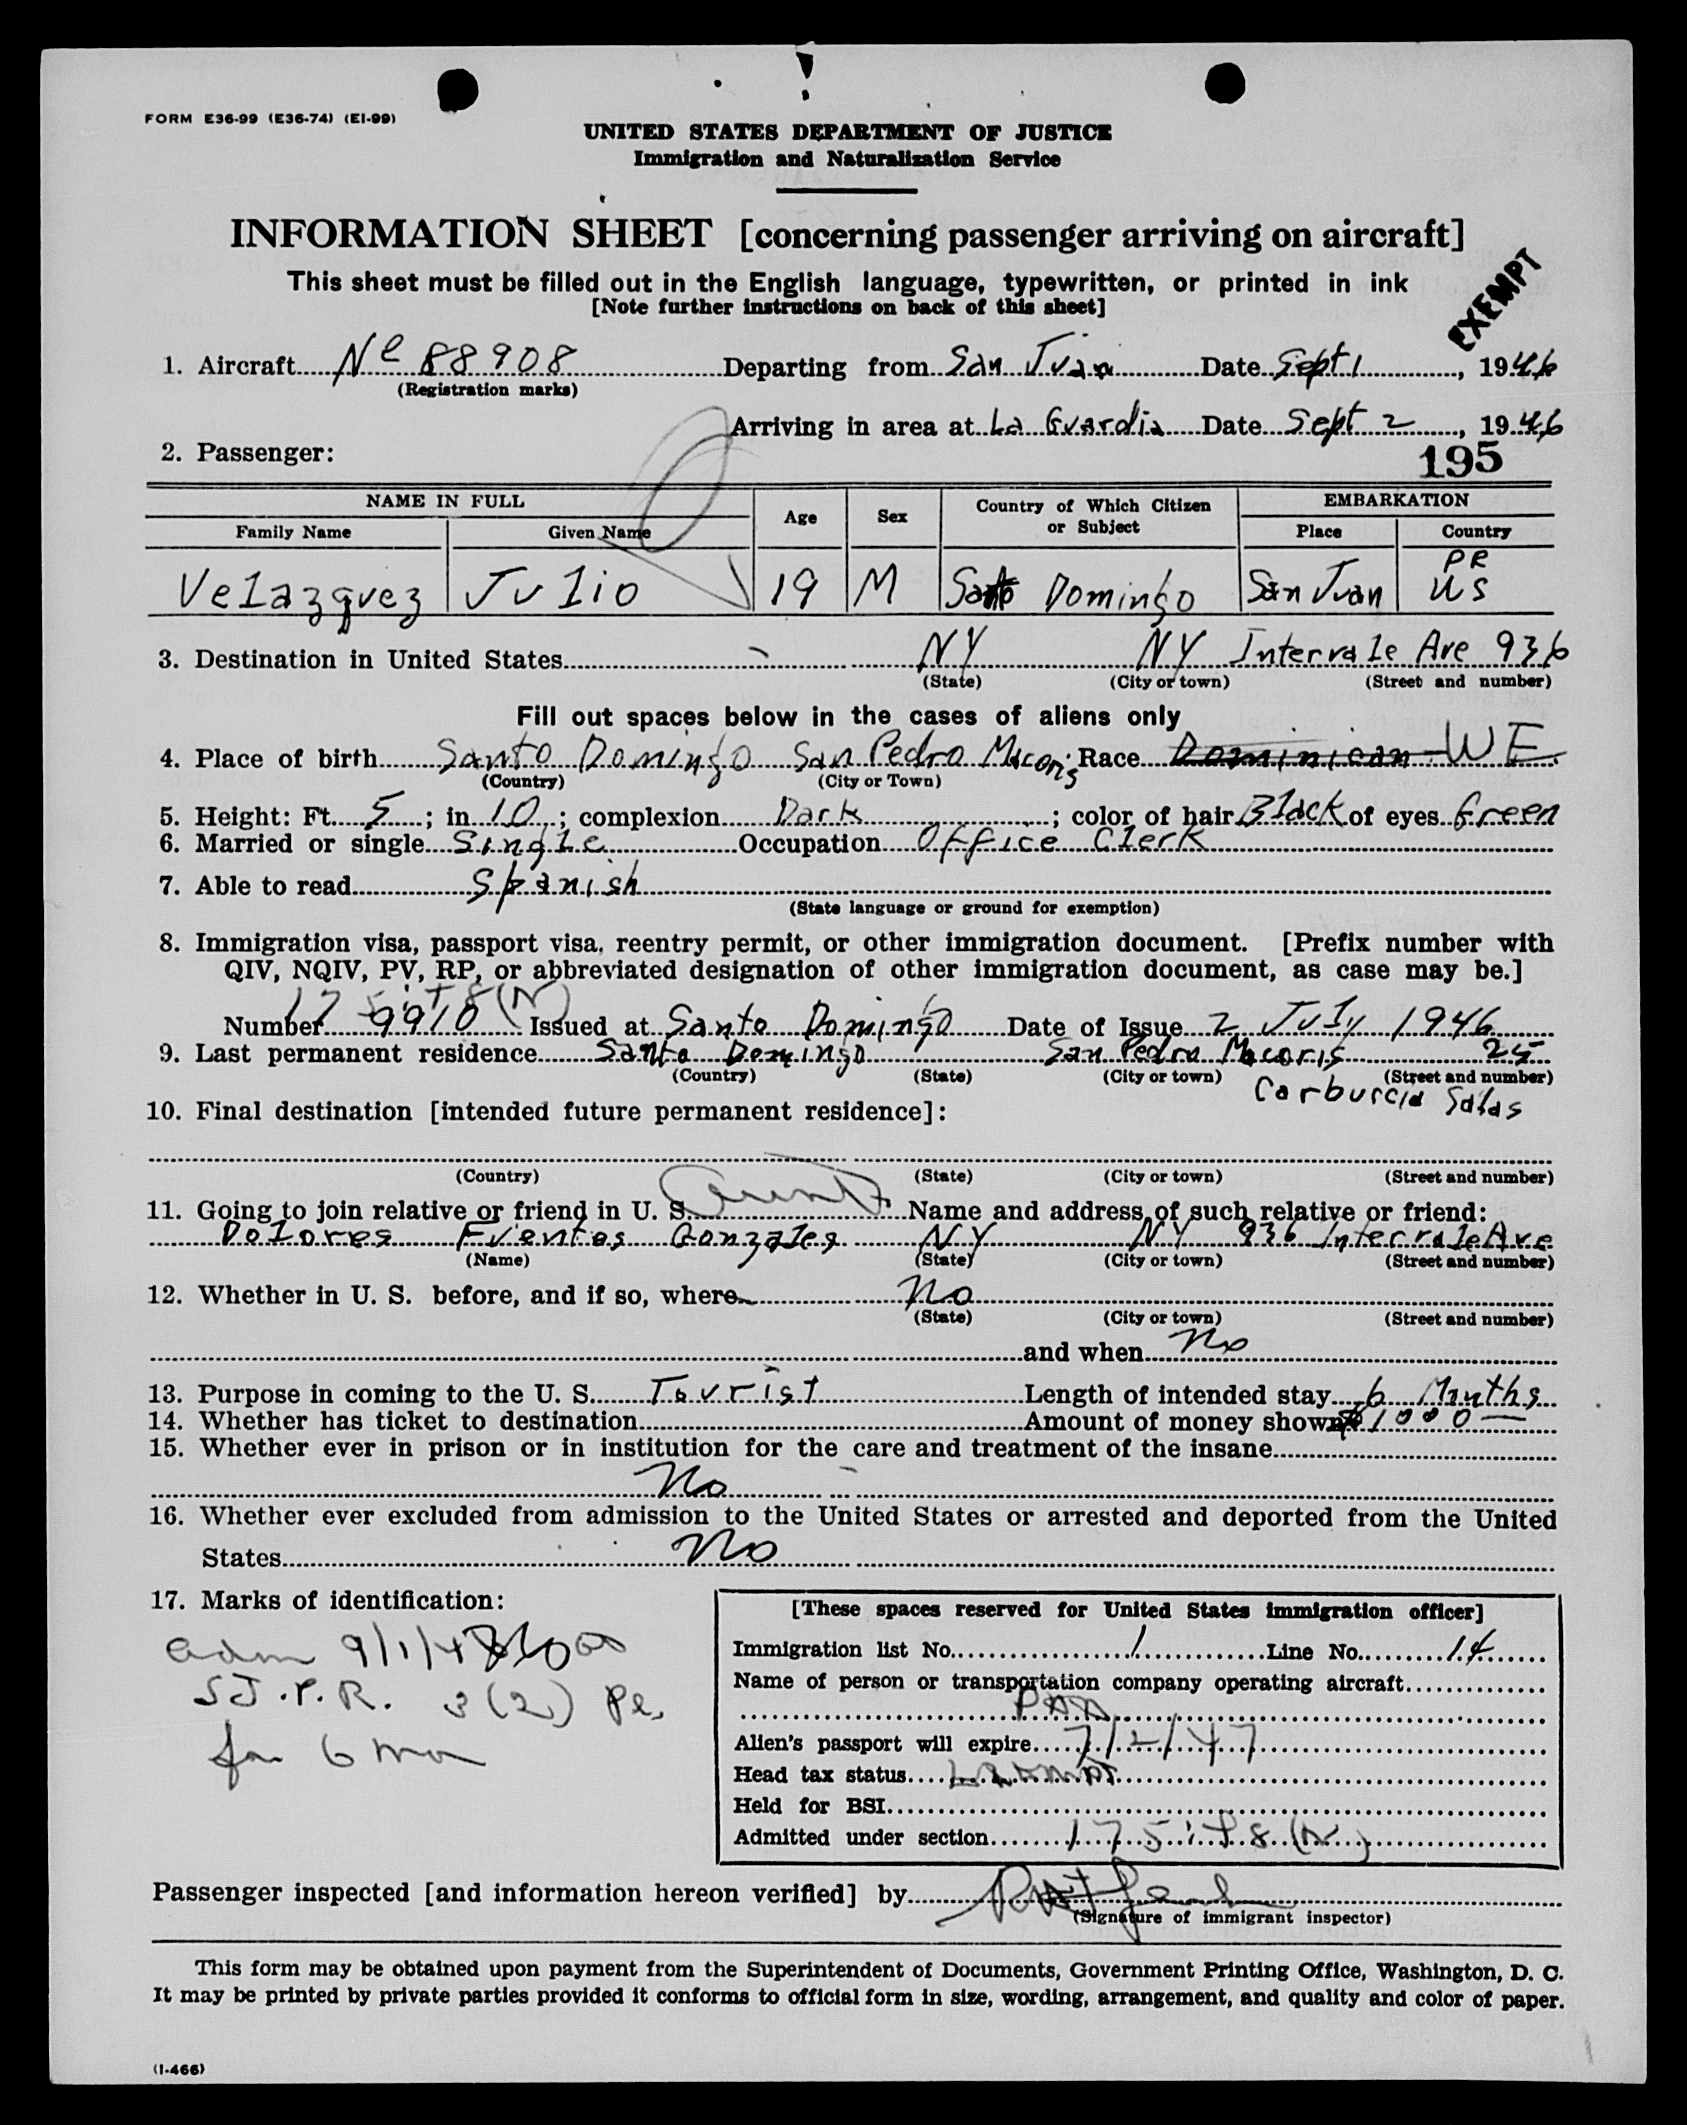 FORM E36-99 (E36-74) (EI-99)
UNITED STATES DEPARTMENT OF JUSTICE
Immigration and Naturalization Service
INFORMATION SHEET [concerning passenger arriving on aircraft]
This sheet must be filled out in the English language, typewritten, or printed in ink
[Note further instructions on back of this sheet]
EXEMPT
1. Aircraft Nc 88908 Departing from San Juan Date Sept 1, 1946
(Registration marks)
Arriving in area at La Guardia Date Sept 2, 1946
2. Passenger:
195
NAME IN FULL Age Sex Country of Which Citizen or Subject EMBARKATION
Family Name Given Name Place Country
PR
Velazquez Julio 19 M Santo Domingo San Juan US
3. Destination in United States NY NY Intervale Ave 936
(State) (City or town) (Street and number)
Fill out spaces below in the cases of aliens only
4. Place of birth Santo Domingo San Pedro Macoris Race Dominican WE
(Country) (City or Town)
5. Height: Ft. 5; in 10; complexion Dark; color of hair Black of eyes Green
6. Married or single Single Occupation Office Clerk
7. Able to read Spanish
(State language or ground for exemption)
8. Immigration visa, passport visa, reentry permit, or other immigration document. [Prefix number with
QIV, NQIV, PV, RP, or abbreviated designation of other immigration document, as case may be.]
Number 9910 Issued at Santo Domingo Date of Issue 2 July 1946
9. Last permanent residence Santo Domingo San Pedro Macoris 25
(Country) (State) (City or town) (Street and number)
10. Final destination [intended future permanent residence]:
(Country) (State) (City or town) (Street and number)
11. Going to join relative or friend in U. S. aunt Name and address of such relative or friend:
Dolores Fuentes Gonzales NY NY 936 Intervale Ave
(Name) (State) (City or town) (Street and number)
12. Whether in U. S. before, and if so, where No
(State) (City or town) (Street and number)
and when No
13. Purpose in coming to the U. S. Tourist Length of intended stay 6 Months
14. Whether has ticket to destination Amount of money shown $1000
15. Whether ever in prison or in institution for the care and treatment of the insane
No
16. Whether ever excluded from admission to the United States or arrested and deported from the United
States No
17. Marks of identification:
adm 9/1/46
SJ.P.R. 3(2) Pe.
for 6 mo
[These spaces reserved for United States immigration officer]
Immigration list No. 1 Line No. 14
Name of person or transportation company operating aircraft
PAA
Alien's passport will expire 7/2/47
Head tax status Exempt
Held for BSI
Admitted under section
Passenger inspected [and information hereon verified] by
(Signature of immigrant inspector)
This form may be obtained upon payment from the Superintendent of Documents, Government Printing Office, Washington, D. C.
It may be printed by private parties provided it conforms to official form in size, wording, arrangement, and quality and color of paper.
(I-466)